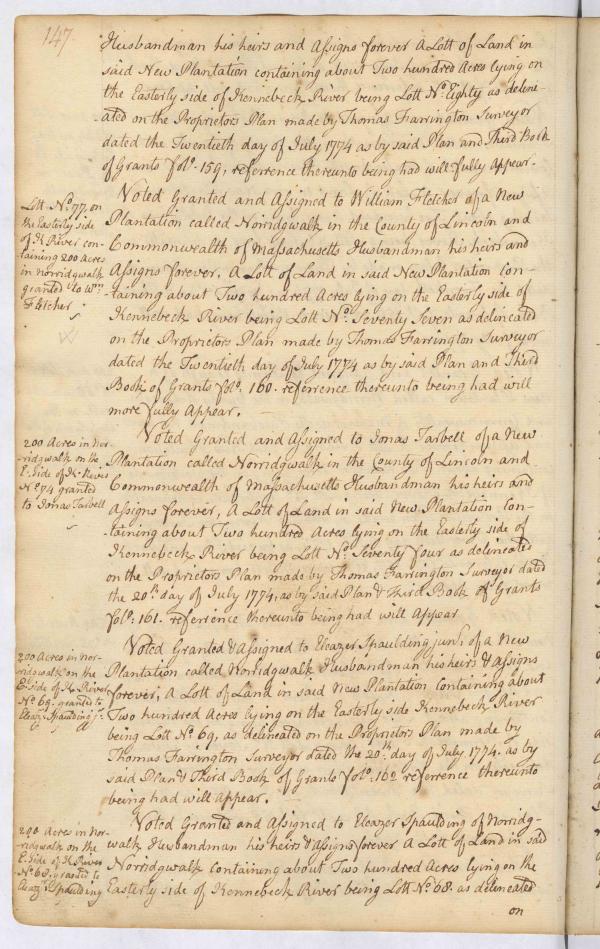 147
Husbandman his heirs and Assigns forever A Lott of Land in
said New Plantation containing about Two hundred Acres lying on
the Easterly side of Kennebeck River being Lott No. Eighty as deline-
-ated on the Proprietors Plan made by Thomas Farrington Surveyor
dated the Twentieth day of July 1774 as by said Plan and Third Book
of Grants fol°. 159, referrence thereunto being had will fully Appear.
Lott No. 77, on
the Easterly side
of K River con-
taining 200 Acres
in norridgwalk
granted to Wm.
Fletcher
Voted Granted and Assigned to William Fletcher of a New
Plantation called Norridgwalk in the County of Lincoln and
Commonwealth of Massachusetts Husbandman his heirs and
Assigns forever, A Lott of Land in said New Plantation Con-
-taining about Two hundred Acres lying on the Easterly side of
Kennebeck River being Lott No. Seventy Seven as delineated
on the Proprietors Plan made by Thomas Farrington Surveyor
dated the Twentieth day of July 1774 as by said Plan and Third
Book of Grants fol°. 160. referrence thereunto being had will
more fully Appear.
200 Acres in Nor-
-ridgwalk on the
E. Side of K. River
No. 74 granted
to Jonas Tarbell
Voted Granted and Assigned to Jonas Tarbell of a New
Plantation called Norridgwalk in the County of Lincoln and
Commonwealth of Massachusetts Husbandman his heirs and
Assigns forever, A Lott of Land in said New Plantation Con-
-taining about Two hundred Acres lying on the Easterly side of
Kennebeck River being Lott No. Seventy four as delineated
on the Proprietors Plan made by Thomas Farrington Surveyor dated
the 20th. day of July 1774, as by said Plan & Third Book of Grants
fol°. 161. referrence thereunto being had will Appear
200 Acres in Nor-
ridgwalk on the
E. Side of K. River
No. 69. granted to
Eleazr. Spaulding jr.
Voted Granted & Assigned to Eleazer Spaulding junr. of a New
Plantation called Norridgwalk Husbandman his heirs & Assigns
forever, A Lott of Land in said New Plantation Containing about
Two hundred Acres lying on the Easterly side Kennebeck River
being Lott No. 69, as delineated on the Proprietors Plan made by
Thomas Farrington Surveyor dated the 20th. day of July 1774. as by
said Plan & Third Book of Grants fol°. 162 referrence thereunto
being had will Appear.
200 Acres in Nor-
-ridgwalk on the
E. Side of K. River
No. 68. granted to
Eleazr. Spaulding
Voted Granted and Assigned to Eleazer Spaulding of Norridg-
walk Husbandman his heirs & Assigns forever A Lott of Land in said
Norridgwalk Containing about Two hundred Acres lying on the
Easterly side of Kennebeck River being Lott No. 68. as delineated
on